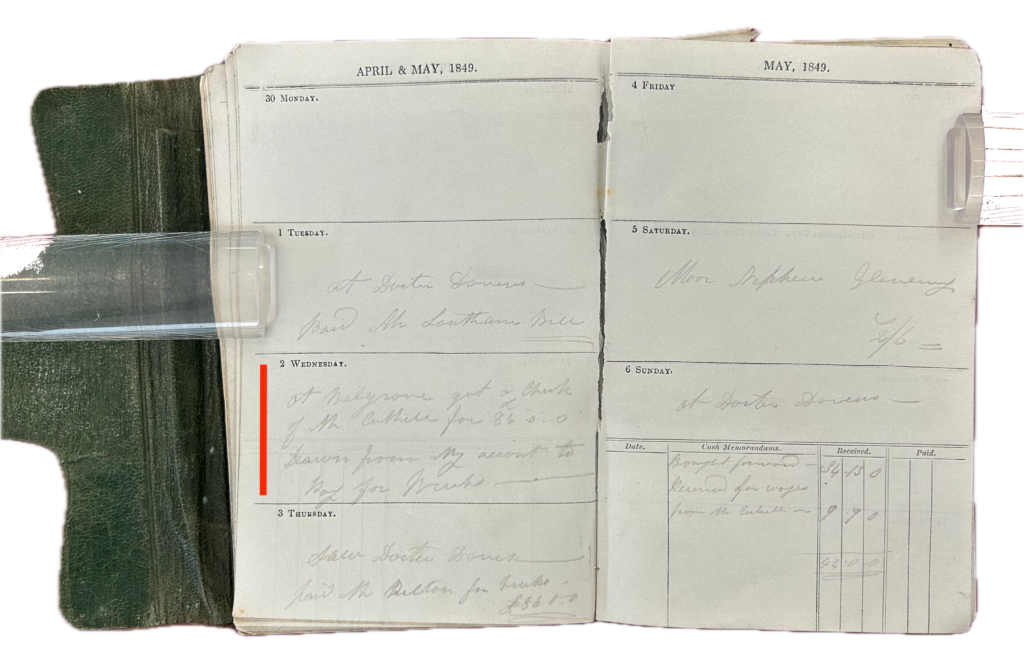 APRIL & MAY, 1849.
30 MONDAY.
1 TUESDAY.
at Doctor
Paid Mr Southam Bill
2 WEDNESDAY.
at Belgrove got a Check
of Mr Cuthill for 86-0-0
Drawn from My account to
Pay for Bricks
3 THURSDAY.
Saw Doctor
paid Mr Hilton for bricks
£86.0.0
MAY, 1849.
4 FRIDAY
5 SATURDAY.
2/6
6 SUNDAY.
at Doctor
Date. Cash Memorandums. Received. Paid.
Bought forward 34 13 0
Received for wages
from Mr Cuthill 9 9 0